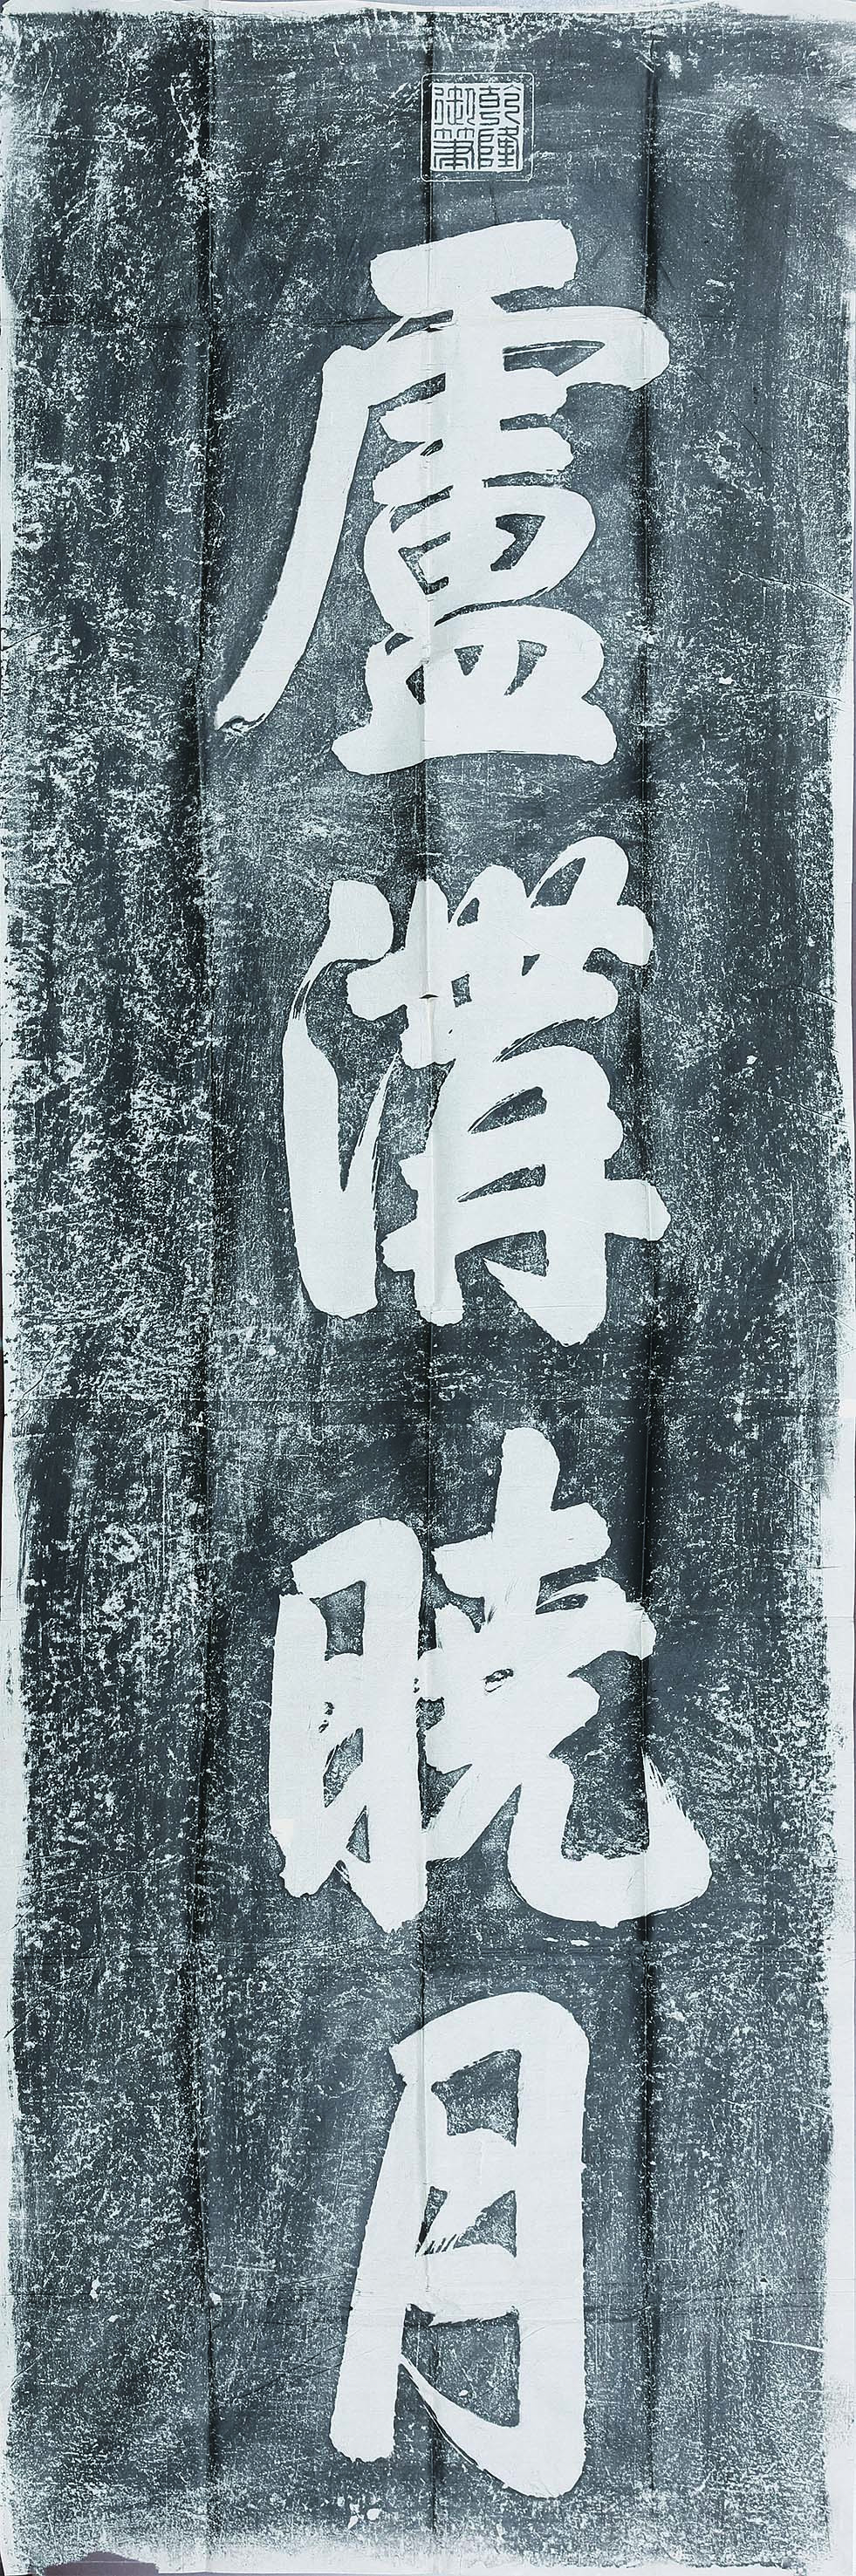 乾隆御筆
盧溝曉月